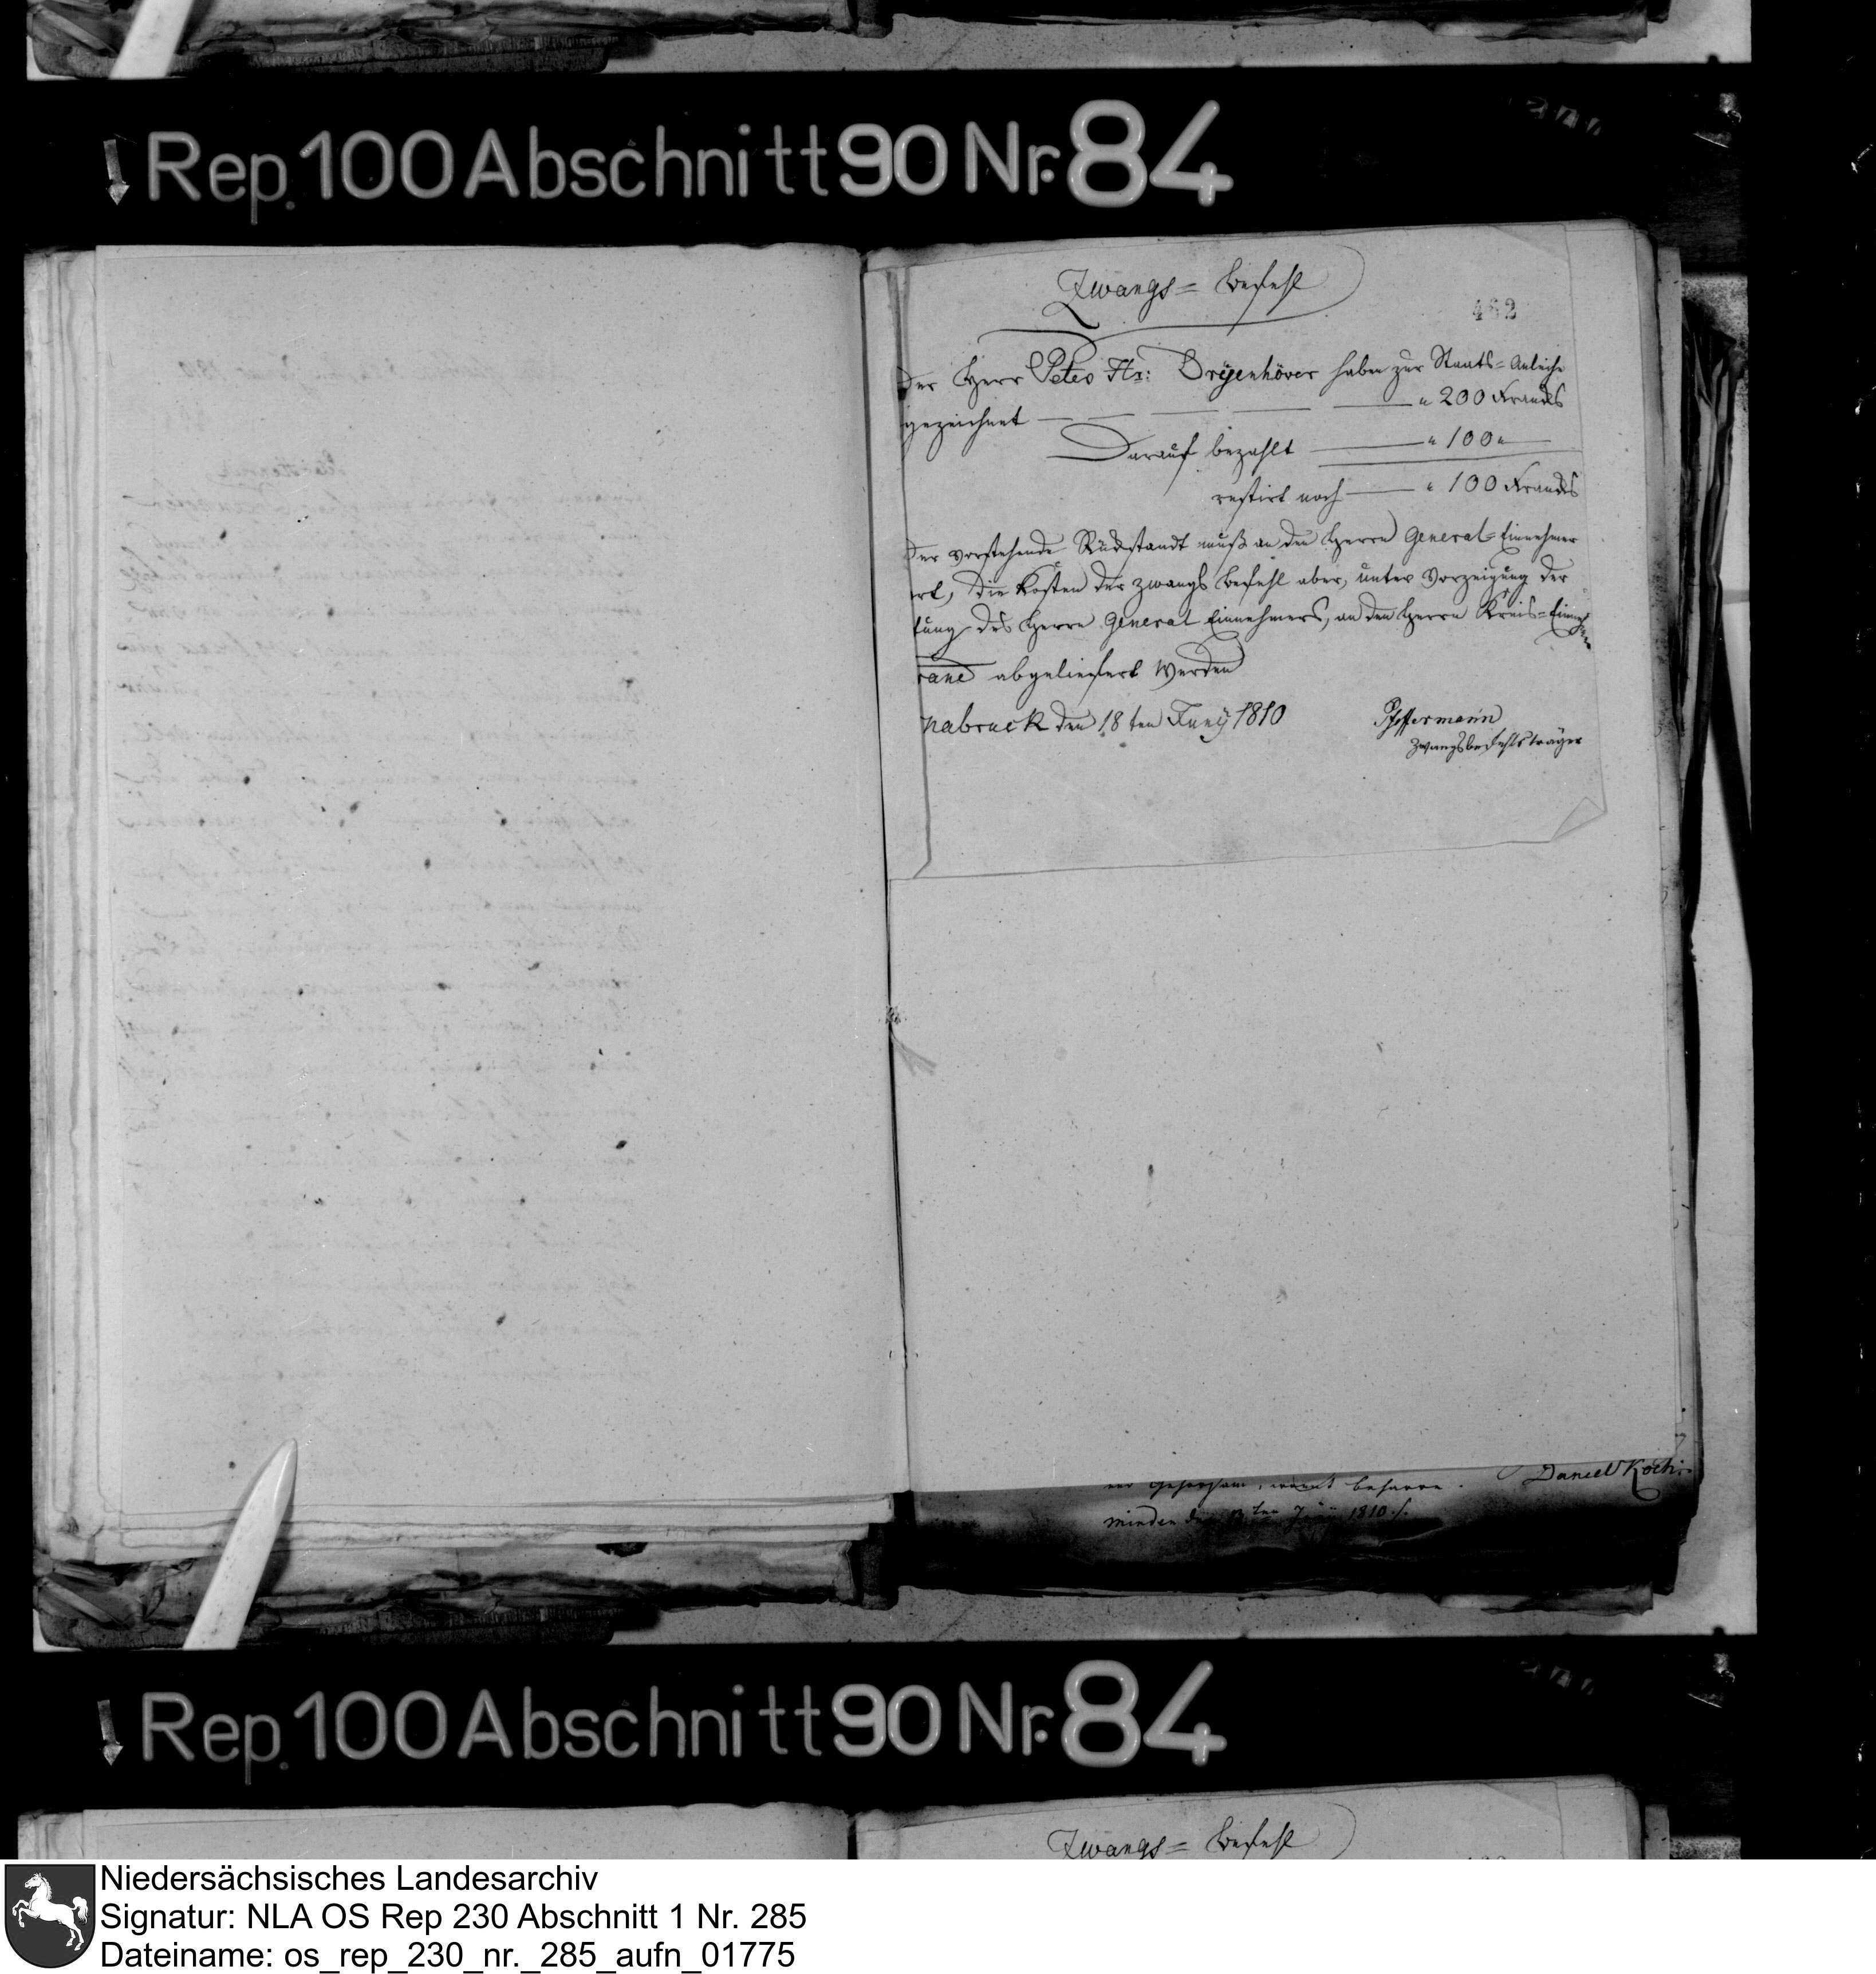 Rep. 100 Abschnitt 90 Nr. 84
Zwangs= Befehl
462
Der Herr Peter Hr: Dryenhöver haben zur Staats=Anleihe
gezeichnet — — — — " 200 Franks
Darauf bezahlt — " 100 "
restirt noch — " 100 Franks
Der vorstehende Rückstandt muß an den Herrn General=Einnehmer
ert, die Kosten der Zwangs Befehl aber, unter Vorzeigung der
tung des Herrn General Einnehmers, an den Herrn Kreis=Einnehmer
abgeliefert werden
nabruck den 18ten Juny 1810
Pfeffermann
Zwangsbefehlsträger
Gehorsam,
Daniel Koch.
Minden den 13ten Juny 1810./.
Rep. 100 Abschnitt 90 Nr. 84
Zwangs= Befehl
Niedersächsisches Landesarchiv
Signatur: NLA OS Rep 230 Abschnitt 1 Nr. 285
Dateiname: os_rep_230_nr._285_aufn_01775